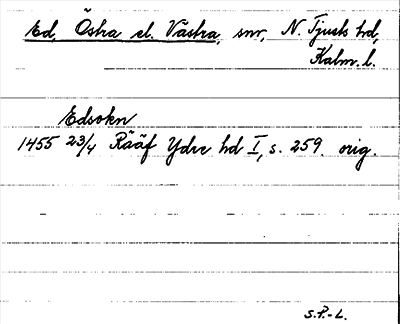 Ed, Östra el. Västra, snr, N. Tjusts hd,
Kalm. l.
Edsokn
1455 23/4 Rääf Ydre hd I, s. 259. orig.
S.P.-L.